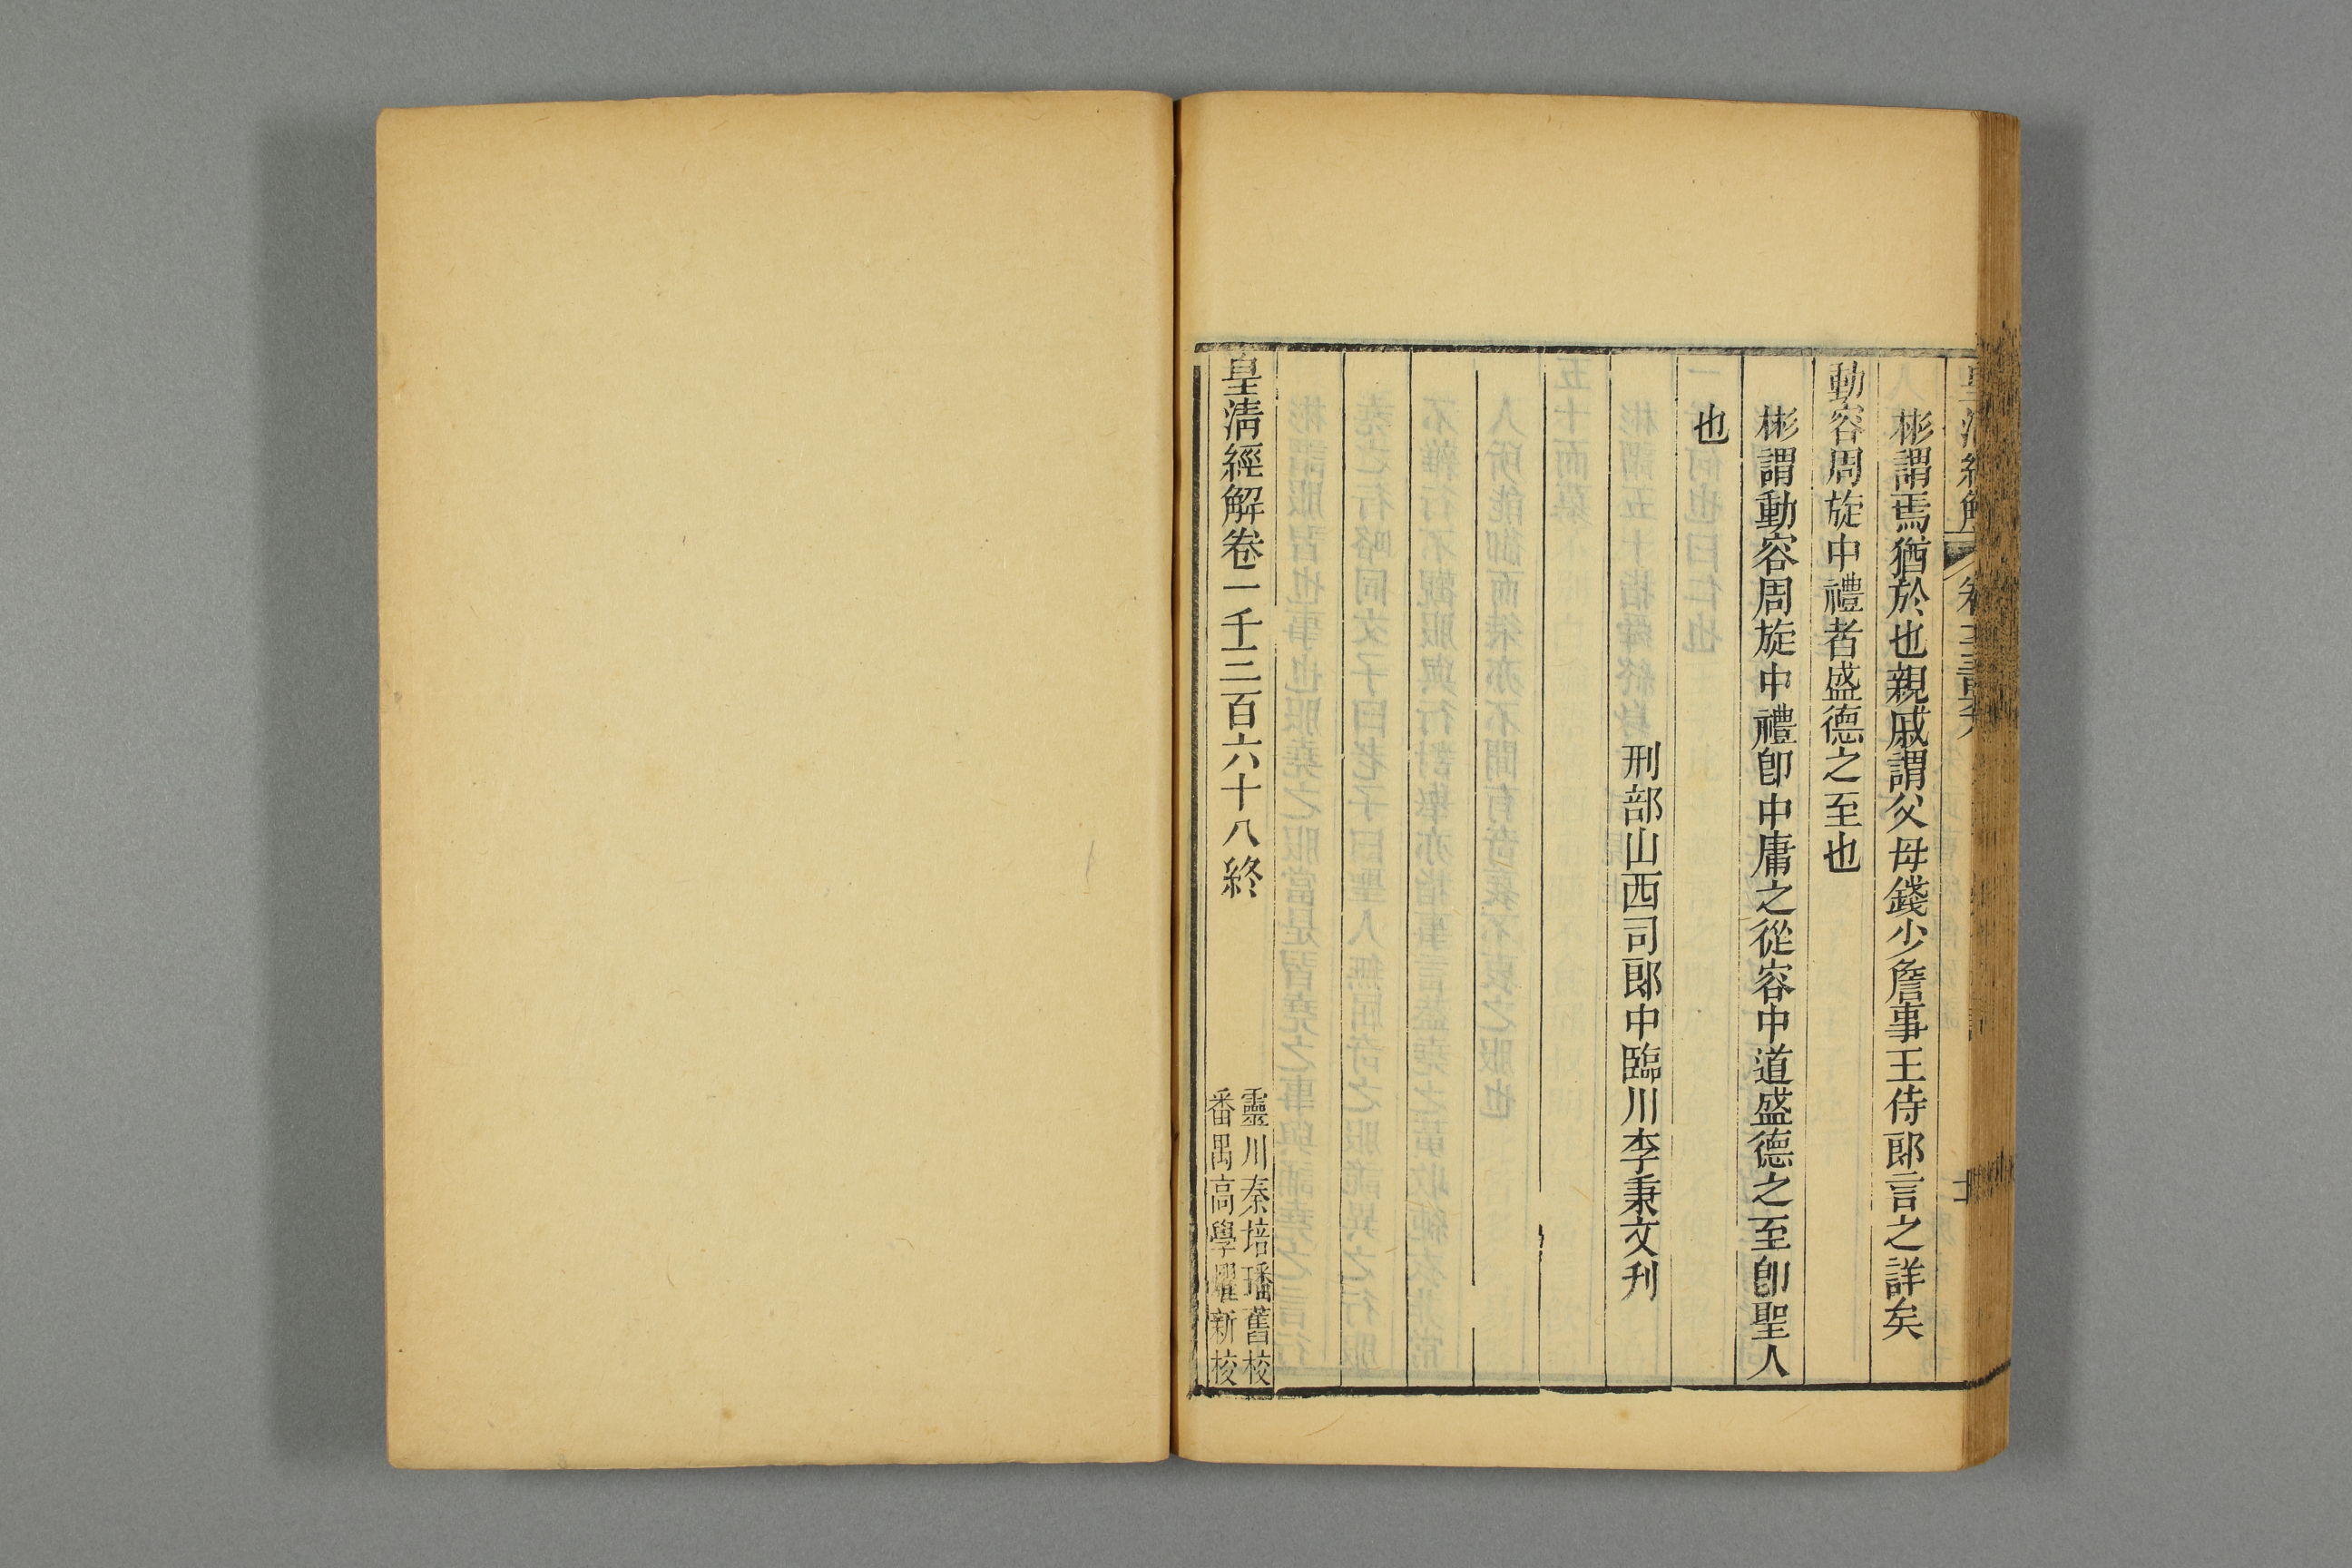 皇清經解
彬謂焉猶於也親戚謂父母錢少詹事王侍郎言之詳矣
動容周旋中禮者盛德之至也
彬謂動容周旋中禮卽中庸之從容中道盛德之至卽聖人
也
刑部山西司郎中臨川李秉文刋
皇清經解卷一千三百六十八終
靈川秦培璠舊校
番禺高學燿新校